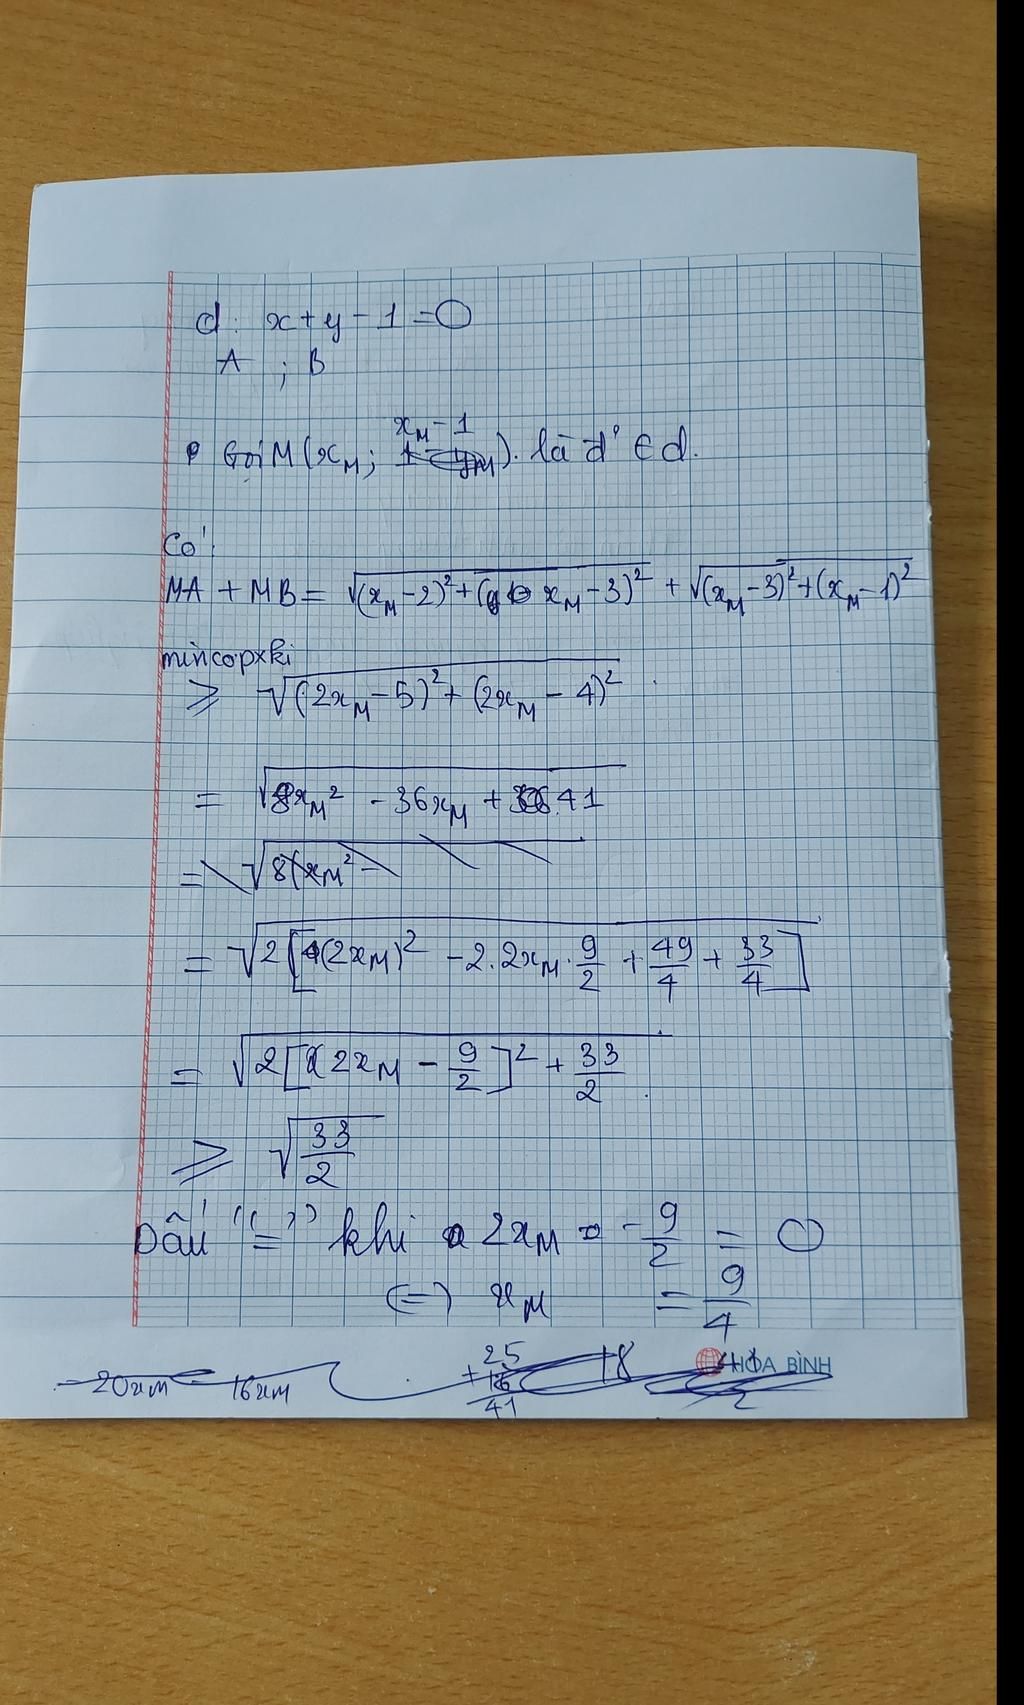 d: x + y - 1 = 0
A ; B
Gọi M (x_M; x_M - 1). là đ' ∈ d.
Có:
MA + MB = √((x_M - 2)² + (x_M - 3)²) + √((x_M - 3)² + (x_M - 1)²)
mincopxki
≥ √((2x_M - 5)² + (2x_M - 4)²)
= √(8x_M² - 36x_M + 41)
= √(8(x_M² -
= √(2[(2x_M)² - 2.2x_M.9/2 + 49/4 + 33/4])
= √(2[2x_M - 9/2]² + 33/2)
≥ √(33/2)
Dấu "=" khi 2x_M - 9/2 = 0
(=) x_M = 9/4
- 20x_M - 16x_M
25
+ 16
41
18
HÒA BÌNH
2